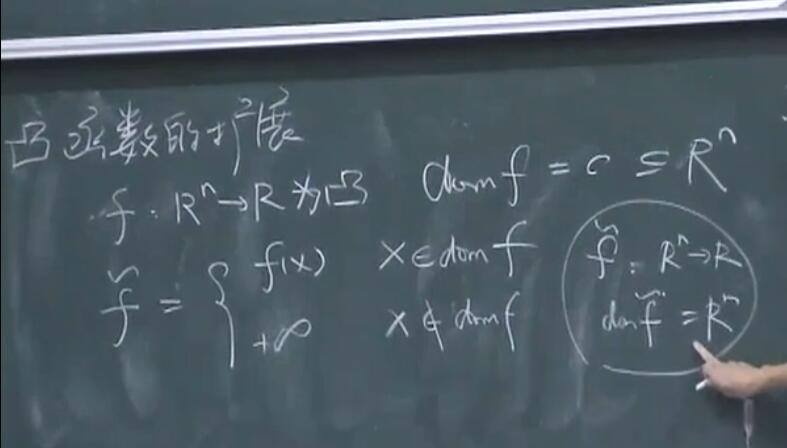 凸函数的扩展
f : Rⁿ→R 为凸 dom f = C ⊆ Rⁿ
f̃ = { f(x) x ∈ dom f
+∞ x ∉ dom f
f̃ : Rⁿ→R
dom f̃ = Rⁿ